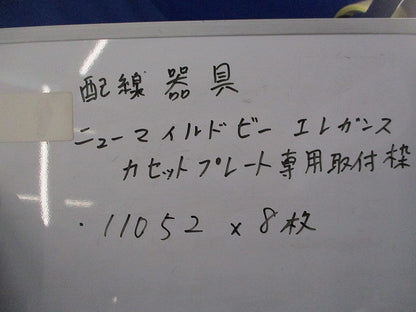 配線器具
ニューマイルドビー エレガンス
カセットプレート専用取付枠
・11052 × 8枚